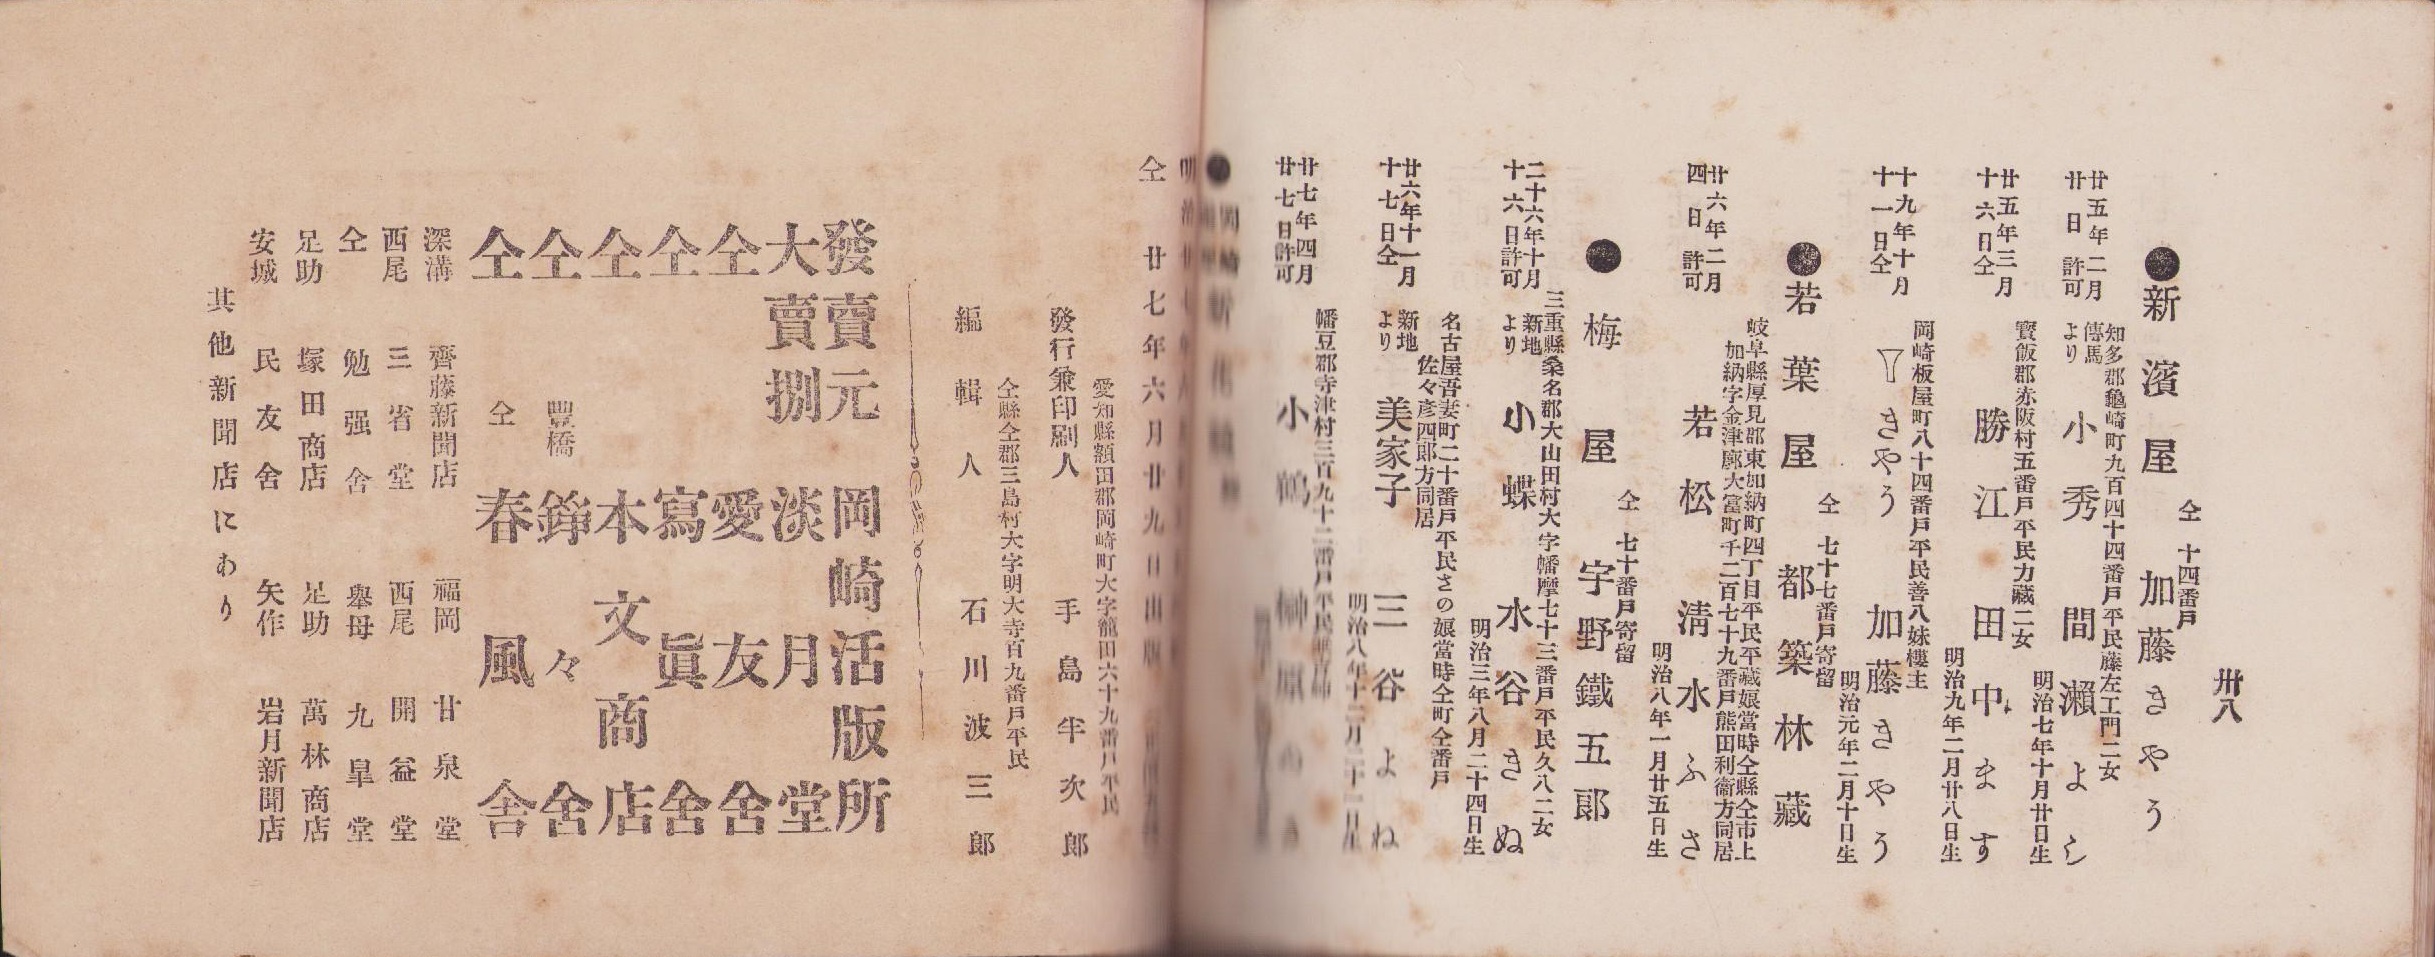 卅八
仝 十四番戸
●新濱屋 加藤きやう
知多郡龜崎町九百四十四番戸平民藤左工門二女
廿五年二月廿日許可
傳馬より 小秀 間瀬よし
明治七年十月廿日生
寳飯郡赤阪村五番戸平民力藏二女
廿五年三月十六日仝
勝江 田中ます
明治九年二月廿八日生
岡崎板屋町八十四番戸平民善八妹樓主
十九年十月十一日仝
きやう 加藤きやう
明治元年二月十日生
仝 七十七番戸寄留
●若葉屋 都築林藏
岐阜縣厚見郡東加納町四丁目平民平藏娘當時仝縣仝市上
加納字金津廓大富町千二百七十九番戸熊田利衞方同居
廿六年二月四日許可
若松 淸水ふさ
明治八年一月廿五日生
仝 七十番戸寄留
●梅屋 宇野鐵五郎
三重縣桑名郡大山田村大字幡摩七十三番戸平民久八二女
二十六年十月十六日許可
新地より 小蝶 水谷きぬ
明治三年八月二十四日生
名古屋吾妻町二十番戸平民さの娘當時仝町仝番戸
佐々彥四郎方同居
廿六年十一月十七日仝
新地より 美家子 三谷よね
明治八年十二月二十一日生
幡豆郡寺津村三百九十二番戸平民
廿七年四月廿七日許可
小鶴 榊原
仝 廿七年六月廿九日出版
愛知縣額田郡岡崎町大字籠田六十九番戸平民
發行兼印刷人 手島半次郎
仝縣仝郡三島村大字明大寺百九番戸平民
編輯人 石川波三郎
發賣元 岡崎活版所
大賣捌 淡月堂
仝 愛友舍
仝 寫眞舍
仝 本文商店
仝 豐橋 錚々舍
仝 仝 春風舍
深溝 齊藤新聞店 福岡 甘泉堂
西尾 三省堂 西尾 開益堂
仝 勉强舍 擧母 九皐堂
足助 塚田商店 足助 萬林商店
安城 民友舍 矢作 岩月新聞店
其他新聞店にあり